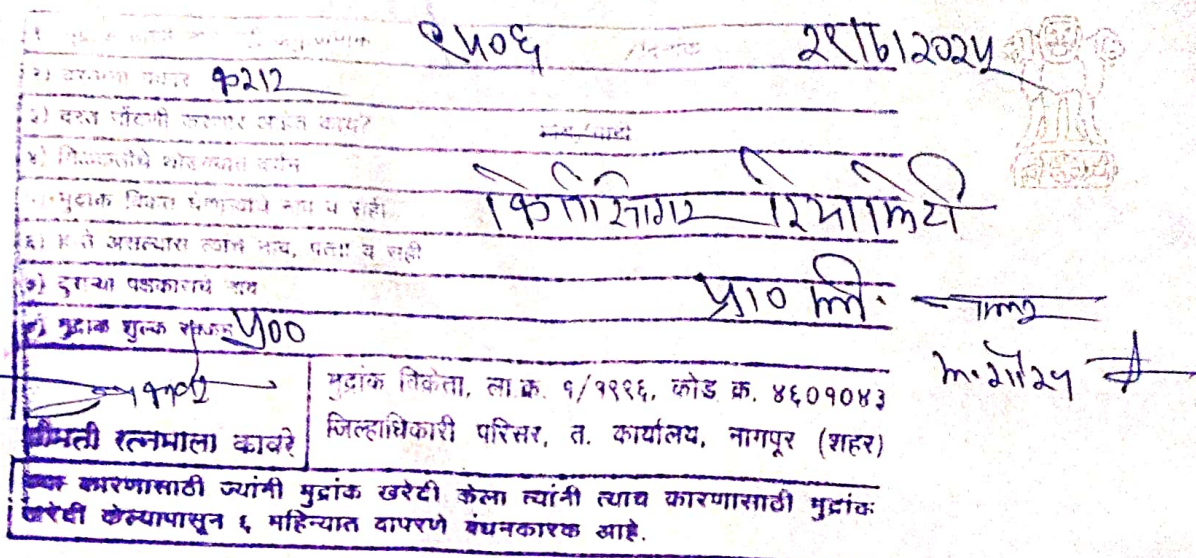 ९५०६ २१/८/२०२५
२) दस्ताचा प्रकार करार
३) दस्त नोंदणी करणार आहेत काय?
४) मिळकतीचे थोडक्यात वर्णन
मुद्रांक विकत घेणाऱ्याचे नाव व सही किर्तीसागर रियालिटी
६) हस्ते असल्यास त्यांचे नाव, पत्ता व सही
७) दुसऱ्या पक्षकाराचे नाव प्रा० ली.
८) मुद्रांक शुल्क रक्कम ५००
मुद्रांक विक्रेता, ला.क्र. १/१९९६, कोड क्र. ४६०१०४३
श्रीमती रत्नमाला कावरे जिल्हाधिकारी परिसर, त. कार्यालय, नागपूर (शहर)
ज्या कारणासाठी ज्यांनी मुद्रांक खरेदी केला त्यांनी त्याच कारणासाठी मुद्रांक
खरेदी केल्यापासून ६ महिन्यात वापरणे बंधनकारक आहे.